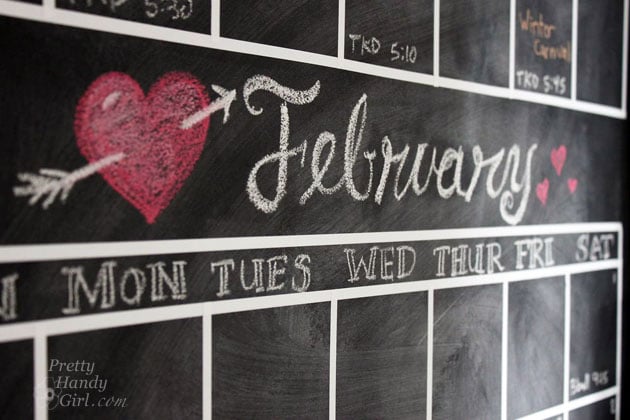 TKD 5:30
TKD 5:10
Winter
Carnival
TKD 5:45
February
MON TUES WED THUR FRI SAT
9:15
Pretty
Handy
Girl.com